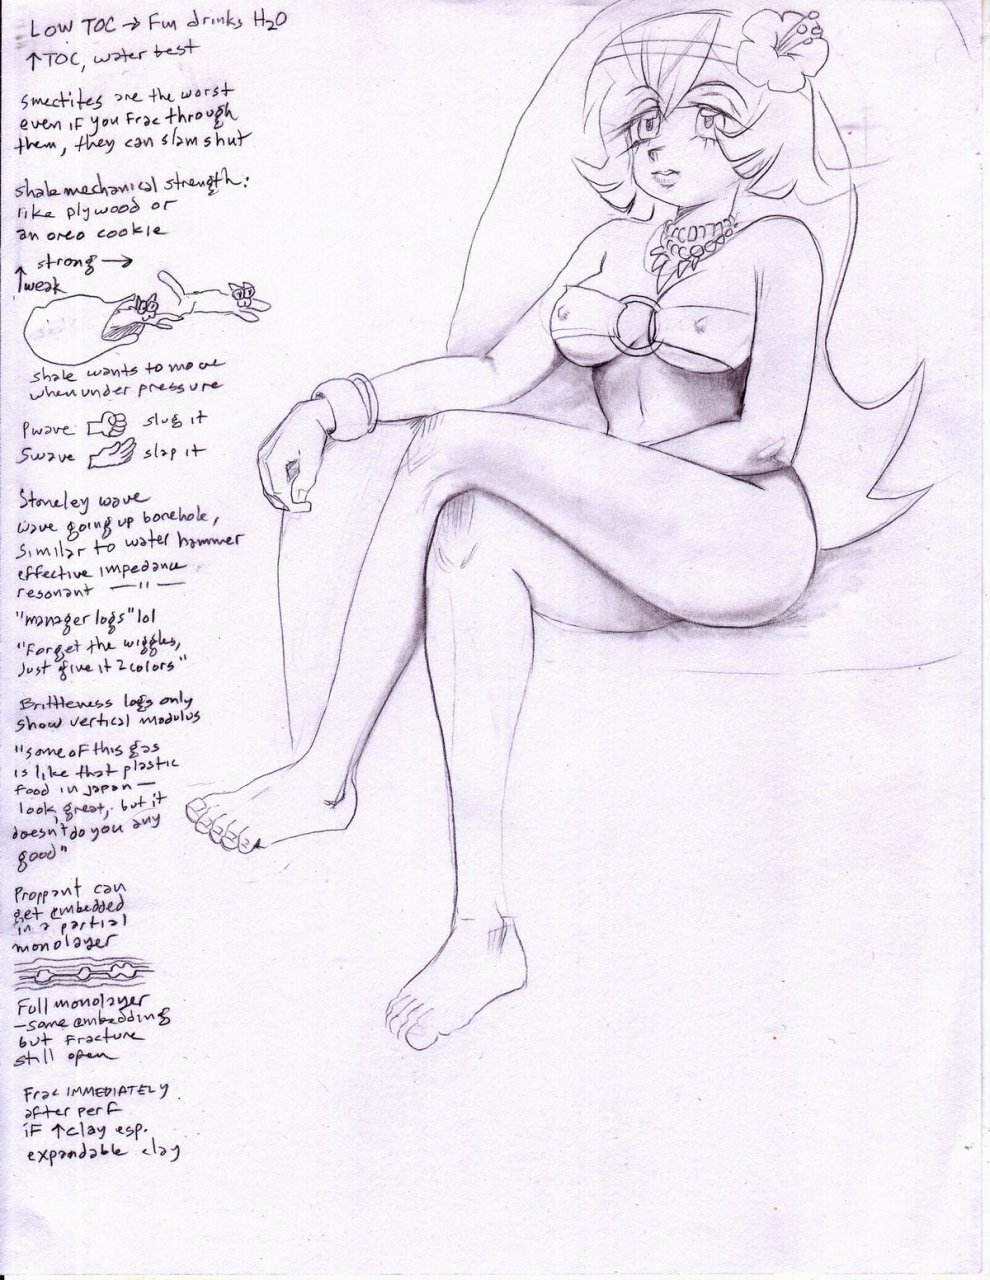 Low TOC → Fm drinks H2O
↑TOC, water best
smectites are the worst
even if you frac through
them, they can slam shut
shale mechanical strength:
like plywood or
an oreo cookie
strong →
↑ weak
shale wants to move
when under pressure
Pwave slug it
Swave slap it
Stoneley wave
wave going up borehole,
similar to water hammer
effective impedance
resonant —"—
"manager logs" lol
"Forget the wiggles,
Just give it 2 colors"
Brittleness logs only
show vertical modulus
"some of this gas
is like that plastic
food in Japan —
look great, but it
doesn't do you any
good"
Proppant can
get embedded
in a partial
monolayer
Full monolayer
—some embedding
but fracture
still open
Frac IMMEDIATELY
after perf
if ↑clay esp.
expandable clay